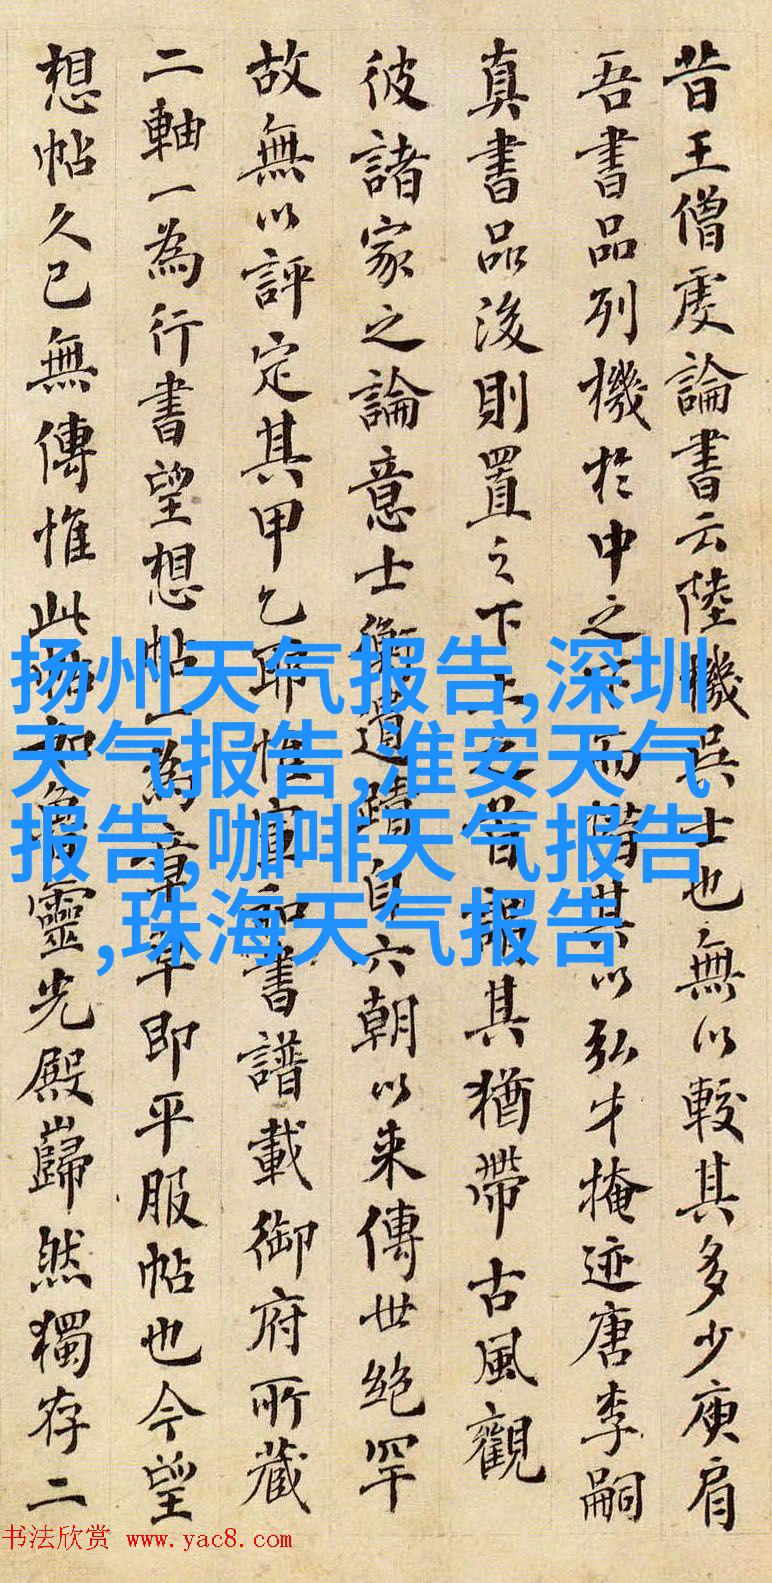 昔王僧虔論書云陸機吳士也無以較其多少庾肩
吾書品列機於中之下而惜其以弘才掩迹唐李嗣
真書品後則置之下上之昔謂其猶帶古風觀
彼諸家之論意士衡遺蹟自六朝以来傳世絶罕
故無以評定其甲乙耶惟宣和書譜載御府所藏
二軸一為行書望想帖一為章草即平服帖也今望
想帖久已無傳惟此帖如魯靈光殿巋然獨存二
扬州天气报告,深圳
天气报告,淮安天气
报告,咖啡天气报告
,珠海天气报告
书法欣赏 www.yac8.com